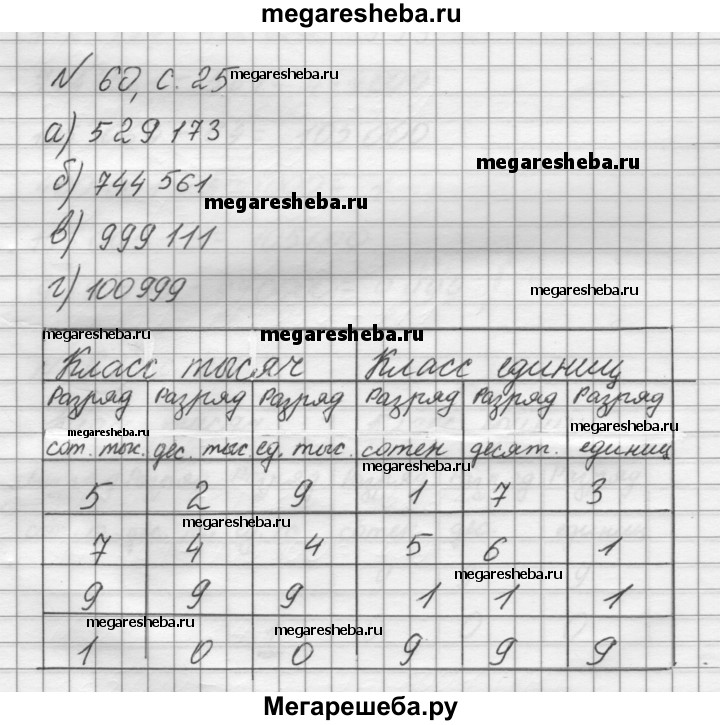 megaresheba.ru
N 60, с. 25 megaresheba.ru
а) 529 173
megaresheba.ru
б) 744 561
megaresheba.ru
в) 999 111
г) 100 999 megaresheba.ru
megaresheba.ru megaresheba.ru
Класс тысяч Класс единиц
Разряд Разряд Разряд Разряд Разряд Разряд
megaresheba.ru megaresheba.ru
сот. тыс. дес. тыс. ед. тыс. сотен десят. единиц
megaresheba.ru
5 2 9 1 7 3
megaresheba.ru
7 4 4 5 6 1
megaresheba.ru
9 9 9 1 1 1
megaresheba.ru megaresheba.ru
1 0 0 9 9 9
Мегарешеба.ру